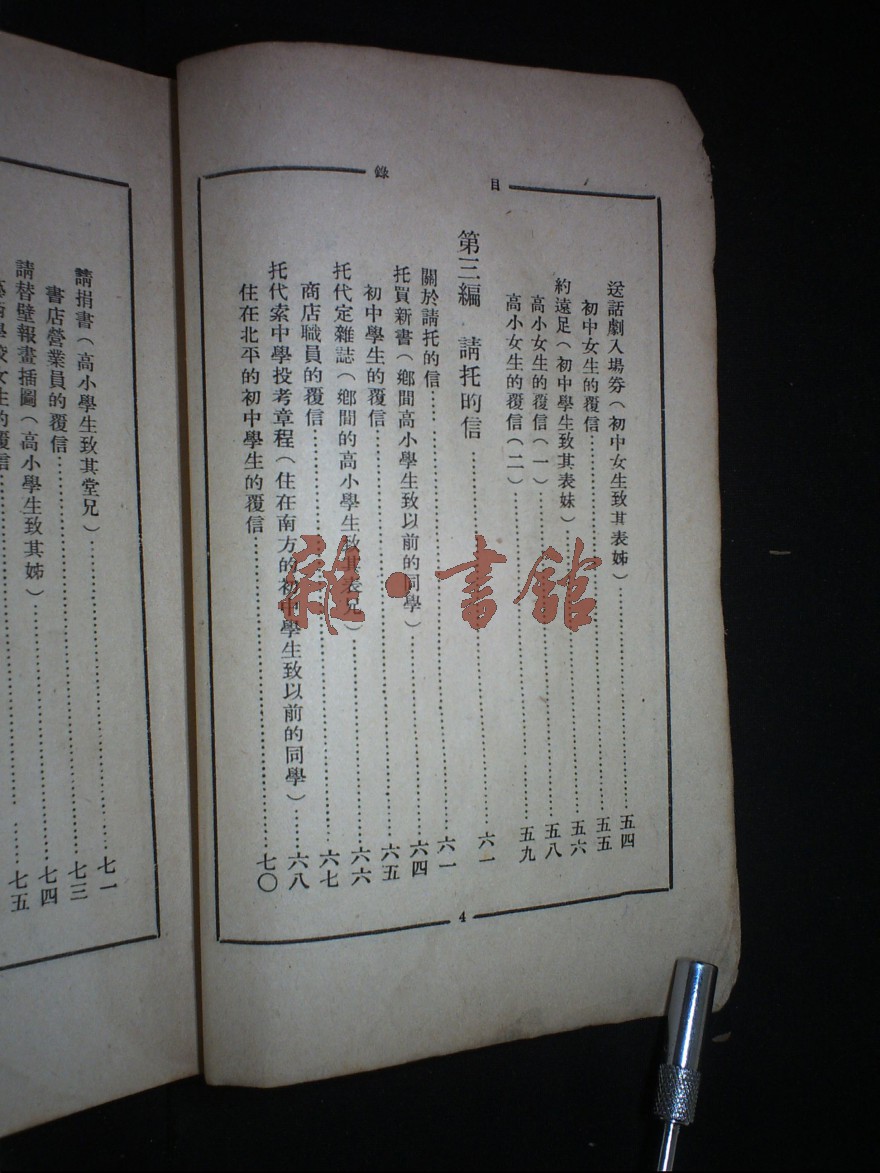 目錄
送話劇入場券（初中女生致其表姊）……五四
初中女生的覆信……五五
約遠足（初中學生致其表妹）……五六
高小女生的覆信（一）……五八
高小女生的覆信（二）……五九
第三編 請托的信……六一
關於請托的信……六一
托買新書（鄉間高小學生致以前的同學）……六四
初中學生的覆信……六五
托代定雜誌（鄉間的高小學生致其表兄）……六六
商店職員的覆信……六七
托代索中學投考章程（住在南方的初中學生致以前的同學）……六八
住在北平的初中學生的覆信……七〇
4
請捐書（高小學生致其堂兄）……七一
書店營業員的覆信……七三
請替壁報畫插圖（高小學生致其姊）……七四
學校女生的覆信……七五
雜·書館